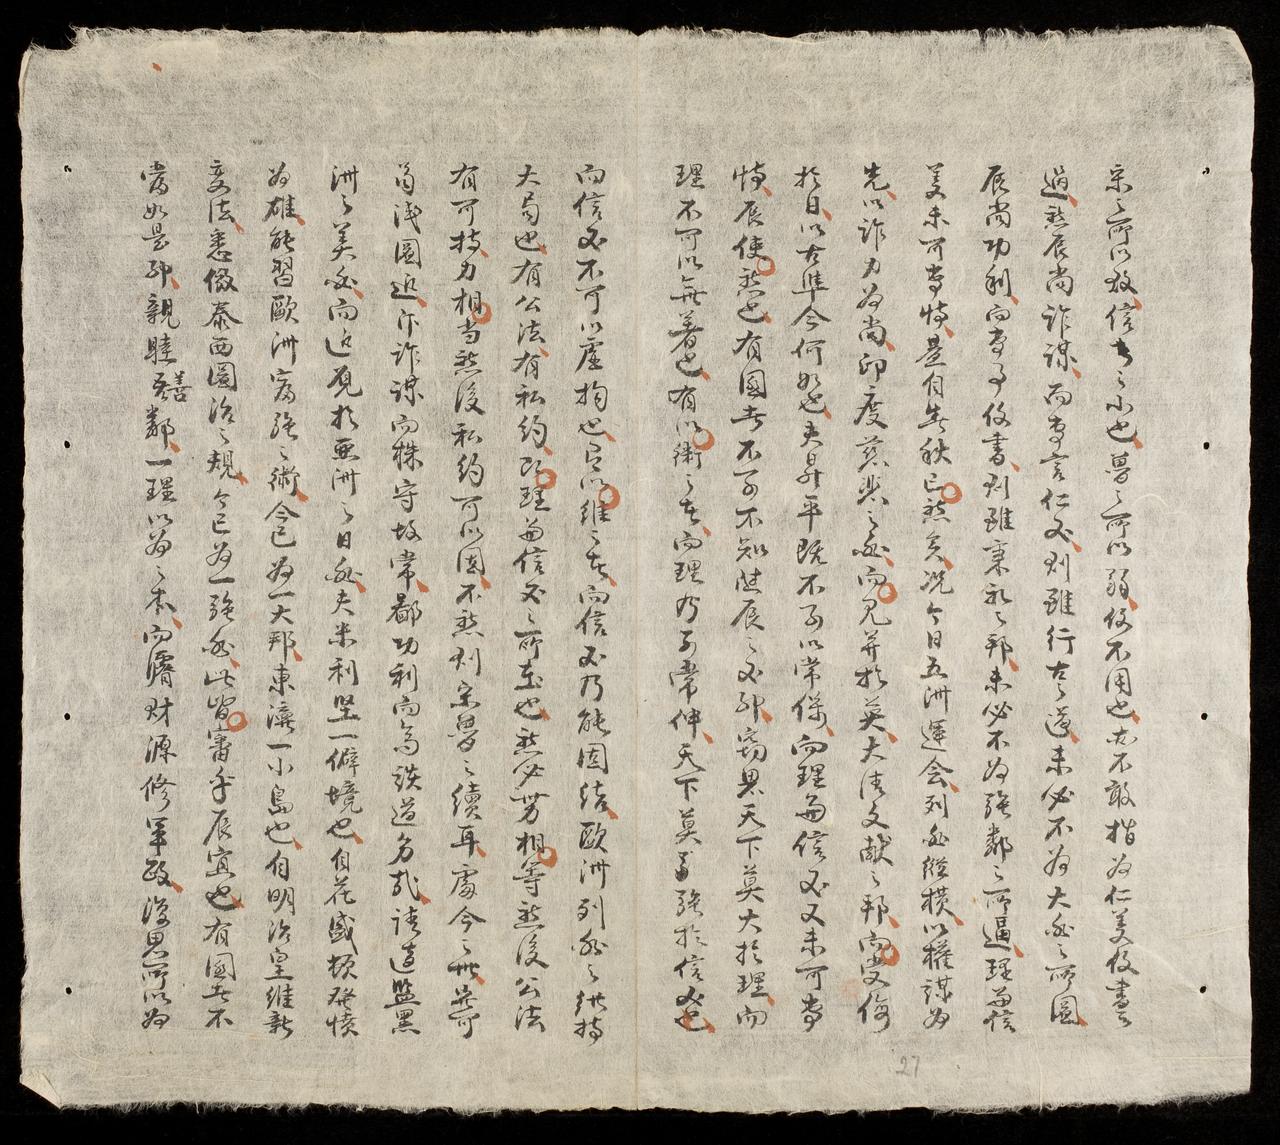 宋之所以敗信者之小也曼之所以弱仗不用也亦不敢指為仁義仗書
過然辰尚詐謀而專言仁義則雖行古道未必不為大國之所圖
辰尚功利而專事仗書則雖秉禮之邦未必不為強鄰之所逼理與信
義未可專恃是自春秋已然矣况今日五洲運会列國縱橫以權謀為
先以詐力為尚印度慈悲之國而見并於英大清文献之邦而受侮
於日以古準今何如也夫昇平既不可以常保而理與信義又未可專
恃辰使然也有國者不可不知此辰之義耶竊思天下莫大於理而
理不可以無著也有以衛之者而理乃可常伸天下莫強於信義也
而信義不可以虛拘也有以維之者而信義乃能固結歐洲列國之維持
大局也有公法有私約即理與信義之所在也然必勢相等然後公法
有可持力相当然後私約可以固不然則宋曼之續耳處今之世苟可
苟淺圖近作詐謀而株守故常鄙功利而高談道学哉請遠監黑
洲之美國而近觀於亜洲之日國夫米利堅一僻境也自花盛頓發憤
為雄能習歐洲富強之術今已為一大邦東瀛一小島也自明治皇維新
変法悉倣泰西圖治之規今已為一強國此皆審乎辰宜也有國者不
當如是耶親睦善鄰一理以為之本而濬財源修軍政復思所以為
27